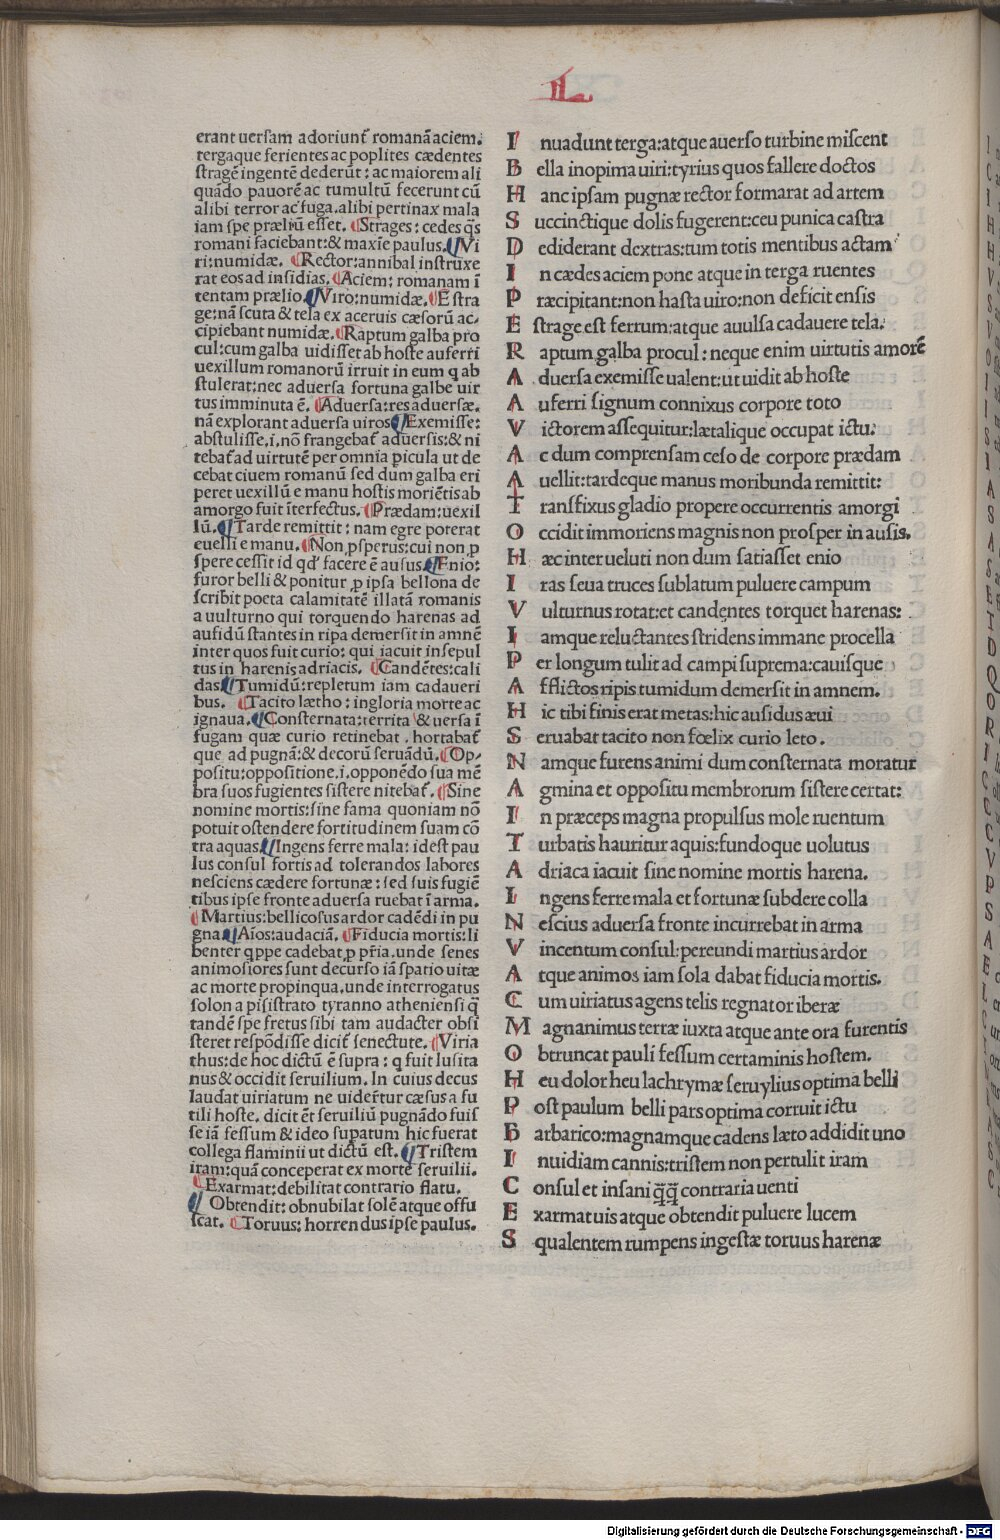 L
erant uersam adoriunt᷑ romanā aciem.
tergaque ferientes ac poplites cædentes
ſtragē ingentē dederūt: ac maiorem ali
quādo pauorē ac tumultū fecerunt cū
alibi terror ac fuga. alibi pertinax mala
iam ſpe præliū eſſet. ¶Strages: cedes q̄s
romani faciebant: & maxīe paulus. ¶Vi
ri: numidæ. ¶Rector: annibal inſtruxe
rat eos ad inſidias. ¶Aciem: romanam ī
tentam prælio. ¶Viro: numidæ. ¶E ſtra
ge: nā ſcuta & tela ex aceruis cæſorū ac⸗
cipiebant numidæ. ¶Raptum galba pro
cul: cum galba uidiſſet ab hoſte auferri
uexillum romanorū irruit in eum q ab
ſtulerat: nec aduerſa fortuna galbe uir
tus imminuta ē. ¶Aduerſa: res aduerſæ.
nā explorant aduerſa uiros ¶Exemiſſe:
abſtuliſſe, i, nō frangebat᷑ aduerſis: & ni
tebat᷑ ad uirtutē per omnia picula ut de
cebat ciuem romanū ſed dum galba eri
peret uexillū e manu hoſtis moriētis ab
amorgo fuit īterfectus. ¶Prædam: uexil
lū. ¶Tarde remittit: nam egre poterat
euelli e manu. ¶Non ꝓſperus: cui non ꝓ
ſpere ceſſit id qd᷑ facere ē auſus ¶Enio:
furor belli & ponitur ꝓ ipſa bellona de
ſcribit poeta calamitatē illatā romanis
a uulturno qui torquendo harenas ad
aufidū ſtantes in ripa demerſit in amnē
inter quos fuit curio: qui iacuit inſepul
tus in harenis adriacis. ¶Candētes: cali
das ¶Tumidū: repletum iam cadaueri
bus. ¶Tacito lætho: ingloria morte ac
ignaua. ¶Conſternata: territa & uerſa ī
fugam quæ curio retinebat. hortabat᷑
que ad pugnā: & decorū ſeruādū. ¶Op⸗
poſitu: oppoſitione, i, opponēdo ſua mē
bra ſuos fugientes ſiſtere nitebat᷑. ¶Sine
nomine mortis: ſine fama quoniam nō
potuit oſtendere fortitudinem ſuam cō
tra aquas. ¶Ingens ferre mala: ideſt pau
lus conſul fortis ad tolerandos labores
neſciens cædere fortunæ: ſed ſuis fugiē
tibus ipſe fronte aduerſa ruebat ī arma.
¶Martius: bellicoſus ardor cadēdi in pu
gna ¶Aīos: audaciā. ¶Fiducia mortis: li
benter qppe cadebat ꝓ pr̄ia. unde ſenes
animoſiores ſunt decurſo iā ſpatio uitæ
ac morte propinqua. unde interrogatus
ſolon a piſiſtrato tyranno athenienſi q̄
tandē ſpe fretus ſibi tam audacter obſi
ſteret reſpōdiſſe dicit᷑ ſenectute. ¶Viria
thus: de hoc dictū ē ſupra: q fuit luſita
nus & occidit ſeruilium. In cuius decus
laudat uiriatum ne uider̄tur cæſus a fu
tili hoſte. dicit ēt ſeruiliū pugnādo fuiſ
ſe iā feſſum & ideo ſupatum hic fuerat
collega flaminii ut dictū eſt. ¶Triſtem
iram: quā conceperat ex morte ſeruilii.
¶Exarmat: debilitat contrario flatu.
¶Obtendit: obnubilat ſolē atque offu
ſcat. ¶Toruus: horrendus ipſe paulus.
I nuadunt terga: atque auerſo turbine miſcent
B ella inopima uiri: tyrius quos fallere doctos
H anc ipſam pugnæ rector formarat ad artem
S uccinctique dolis fugerent: ceu punica caſtra
D ediderant dextras: tum totis mentibus actam
I n cædes aciem pone atque in terga ruentes
P ræcipitant: non haſta uiro: non deficit enſis
E ſtrage eſt ferrum: atque auulſa cadauere tela.
R aptum galba procul: neque enim uirtutis amorē
A duerſa exemiſſe ualent: ut uidit ab hoſte
A uferri ſignum connixus corpore toto
V ictorem aſſequitur: lætalique occupat ictu.
A c dum comprenſam ceſo de corpore prædam
A uellit: tardeque manus moribunda remittit:
T ranſfixus gladio propere occurrentis amorgi
O ccidit immoriens magnis non proſper in auſis.
H æc inter ueluti non dum ſatiaſſet enio
I ras ſeua truces ſublatum puluere campum
V ulturnus rotat: et candentes torquet harenas:
I amque reluctantes ſtridens immane procella
P er longum tulit ad campi ſuprema: cauiſque
A fflictos ripis tumidum demerſit in amnem.
H ic tibi finis erat metas: hic aufidus æui
S eruabat tacito non fœlix curio leto.
N amque furens animi dum conſternata moratur
A gmina et oppoſitu membrorum ſiſtere certat:
I n præceps magna propulſus mole ruentum
T urbatis hauritur aquis: fundoque uolutus
A driaca iacuit ſine nomine mortis harena.
I ngens ferre mala et fortunæ ſubdere colla
N eſcius aduerſa fronte incurrebat in arma
V incentum conſul: pereundi martius ardor
A tque animos iam ſola dabat fiducia mortis.
C um uiriatus agens telis regnator iberæ
M agnanimus terræ iuxta atque ante ora furentis
O btruncat pauli feſſum certaminis hoſtem.
H eu dolor heu lachrymæ ſeruylius optima belli
P oſt paulum belli pars optima corruit ictu
B arbarico: magnamque cadens læto addidit uno
I nuidiam cannis: triſtem non pertulit iram
C onſul et inſani q̄q̄ contraria uenti
E xarmat uis atque obtendit puluere lucem
S qualentem rumpens ingeſtæ toruus harenæ
Digitalisierung gefördert durch die Deutsche Forschungsgemeinschaft - DFG